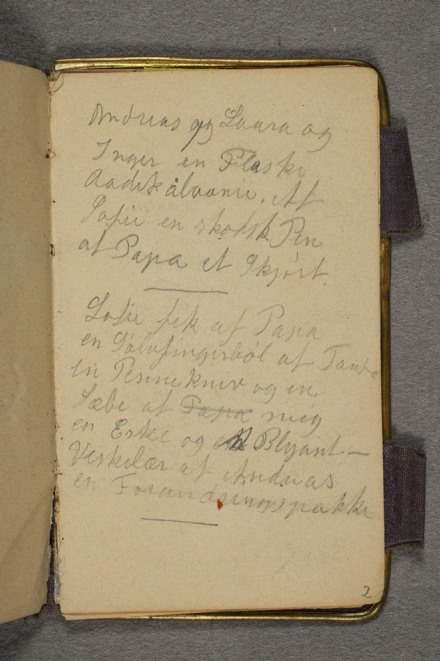 Andreas og Laura og
Inger en Flaske
Aadikalaavnie. Af
Sofie en skodsk Pen
af Papa et Skjört.
Sofie fik af Papa
en Sölvfingerböl af Tante
en Pennekniv og en
Sæbe af Papa meg
en Eske og et Blyant –
Viskelær af Andreas
en Forandringspakke
2